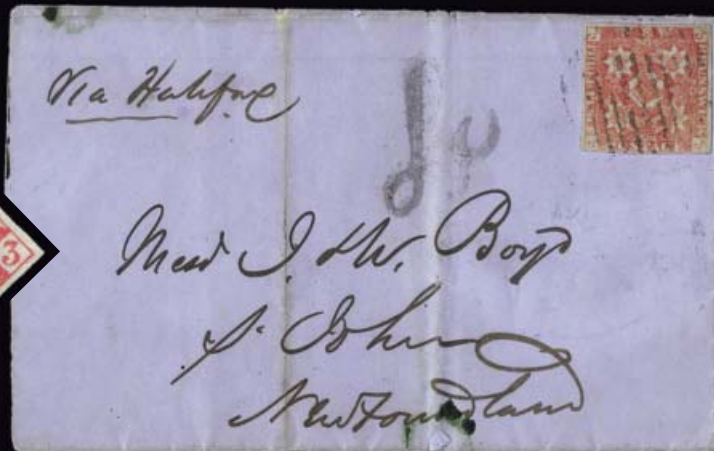 Via Halifax
Mess J. & W. Boyd
St John
Newfoundland
3